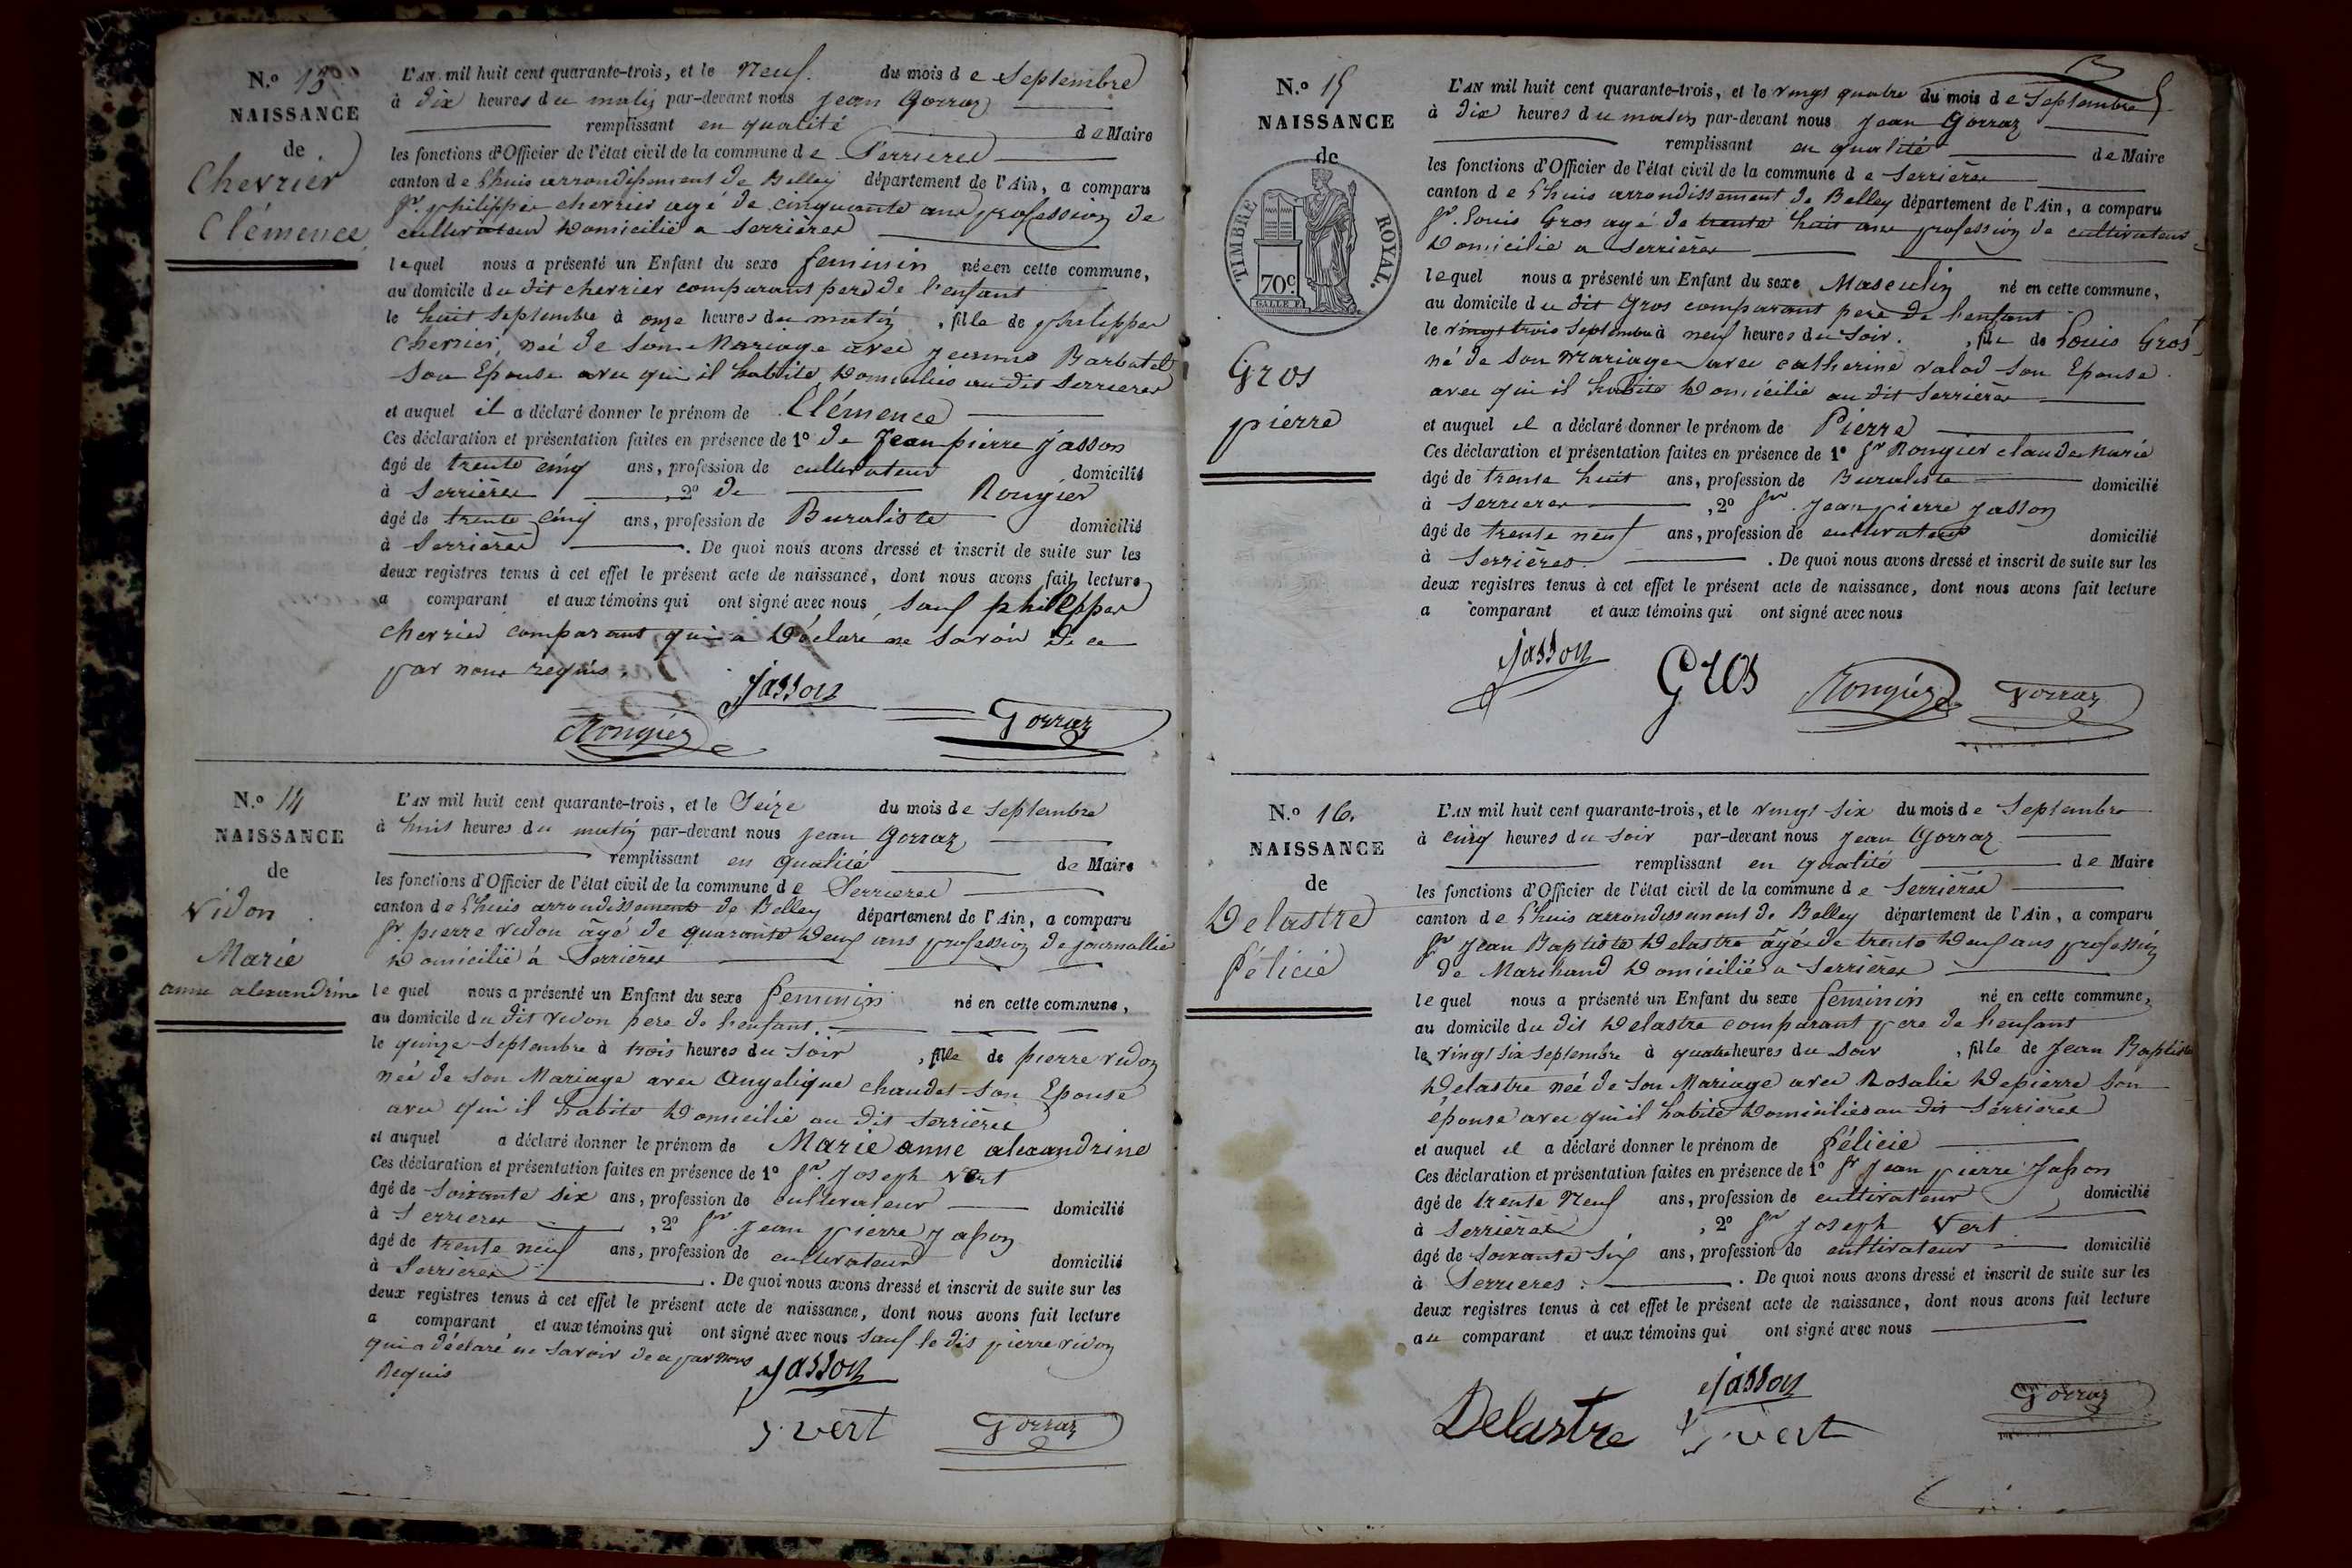 N.o 13
NAISSANCE
de
Chevrier
Clémence
L'AN mil huit cent quarante-trois, et le Neuf. du mois de Septembre
à dix heures du matin par-devant nous Jean Gorraz
remplissant en qualité de Maire
les fonctions d'Officier de l'état civil de la commune de Serrieres
canton de Lhuis arrondissement de Belley département de l'Ain, a comparu
Sr. philippe chevrier agé de cinquante ans profession de
cultivateur Domicilié a Serrières
lequel nous a présenté un Enfant du sexe feminin née en cette commune,
au domicile du dit chevrier comparant pere de l'enfant
le huit Septembre à onze heures du matin, fille de philippe
chevrier, neé de son Mariage avec jeanne Barbatel
Son Epouse avec qui il habite Domicilies au dit Serrieres
et auquel il a déclaré donner le prénom de Clémence
Ces déclaration et présentation faites en présence de 1o de Jean pierre jasson
âgé de trente cinq ans, profession de cultivateur domicilié
à Serrières, 2o de Rougier
âgé de trente cinq ans, profession de Buraliste domicilié
à Serrières. De quoi nous avons dressé et inscrit de suite sur les
deux registres tenus à cet effet le présent acte de naissance, dont nous avons fait lecture
a comparant et aux témoins qui ont signé avec nous, Sauf philippe
chevrier comparant qui a Déclaré ne Savoir de ce
par nous requis.
Jasson
Rougier
Gorraz
N.o 14
NAISSANCE
de
Vidon
Marie
anne alexandrine
L'AN mil huit cent quarante-trois, et le Seize du mois de Septembre
à huit heures du matin par-devant nous Jean Gorraz
remplissant en qualité de Maire
les fonctions d'Officier de l'état civil de la commune de Serrieres
canton de Lhuis arrondissement de Belley département de l'Ain, a comparu
Sr. pierre vidon âgé de quarante Neuf ans profession de journallier
Domicilié à Serrières
lequel nous a présenté un Enfant du sexe feminin né en cette commune,
au domicile du dit vidon pere de l'enfant.
le quinze Septembre à trois heures du Soir, fille de pierre vidon
neé de Son Mariage avec Angelique chaudet Son Epouse
avec qui il habite Domicilié au dit Serrières
et auquel a déclaré donner le prénom de Marie anne alexandrine
Ces déclaration et présentation faites en présence de 1o Sr. Joseph Vert
âgé de Soixante Six ans, profession de cultivateur domicilié
à Serrieres, 2o Sr. Jean pierre Jasson
âgé de trente neuf ans, profession de cultivateur domicilié
à Serrieres. De quoi nous avons dressé et inscrit de suite sur les
deux registres tenus à cet effet le présent acte de naissance, dont nous avons fait lecture
a comparant, et aux témoins qui ont signé avec nous Sauf le dit pierre vidon
qui a déclaré ne Savoir de ce par nous
Requis
Jasson
J. vert
Gorraz
N.o 15
NAISSANCE
de
TIMBRE ROYAL.
70c.
GALLE F.
Gros
pierre
L'AN mil huit cent quarante-trois, et le vingt quatre du mois de Septembre
à Dix heures du matin par-devant nous Jean Gorraz
remplissant en qualité de Maire
les fonctions d'Officier de l'état civil de la commune de Serrières
canton de Lhuis arrondissement de Belley département de l'Ain, a comparu
Sr. Louis Gros agé de trente huit ans profession de cultivateur
Domicilié a Serrières
lequel nous a présenté un Enfant du sexe Masculin né en cette commune,
au domicile du dit Gros comparant pere de l'enfant
le vingt trois Septembre à neuf heures du Soir, fils de Louis Gros
né de Son mariage avec catherine valod Son Epouse
avec qui il habite Domicilié au dit Serrières
et auquel il a déclaré donner le prénom de Pierre
Ces déclaration et présentation faites en présence de 1o Sr Rougier claude Marie
âgé de trente huit ans, profession de Buraliste domicilié
à Serrieres, 2o Sr. Jean pierre Jasson
âgé de trente neuf ans, profession de cultivateur domicilié
à Serrières. De quoi nous avons dressé et inscrit de suite sur les
deux registres tenus à cet effet le présent acte de naissance, dont nous avons fait lecture
a comparant et aux témoins qui ont signé avec nous
Jasson
Gros
Rougier
Gorraz
N.o 16.
NAISSANCE
de
Delastre
félicie
L'AN mil huit cent quarante-trois, et le vingt six du mois de Septembre
à cinq heures du Soir par-devant nous Jean Gorraz
remplissant en qualité de Maire
les fonctions d'Officier de l'état civil de la commune de Serrières
canton de Lhuis arrondissement de Belley département de l'Ain, a comparu
Sr Jean Baptiste Delastre âgé de trente Neuf ans profession
de Marchand Domicilié a Serrières
lequel nous a présenté un Enfant du sexe feminin né en cette commune,
au domicile du dit Delastre comparant pere de l'enfant
le vingt six septembre à quatre heures du Soir, fille de Jean Baptiste
Delastre neé de Son Mariage avec Rosalie Depierre Son
épouse avec qui il habite Domicilies au dit Serrières
et auquel il a déclaré donner le prénom de félicie
Ces déclaration et présentation faites en présence de 1o Sr Jean pierre Jasson
âgé de trente Neuf ans, profession de cultivateur domicilié
à Serrières, 2o Sr Joseph Vert
âgé de Soixante Six ans, profession de cultivateur domicilié
à Serrieres. De quoi nous avons dressé et inscrit de suite sur les
deux registres tenus à cet effet le présent acte de naissance, dont nous avons fait lecture
au comparant et aux témoins qui ont signé avec nous
Jasson
Delastre
J. vert
Gorraz